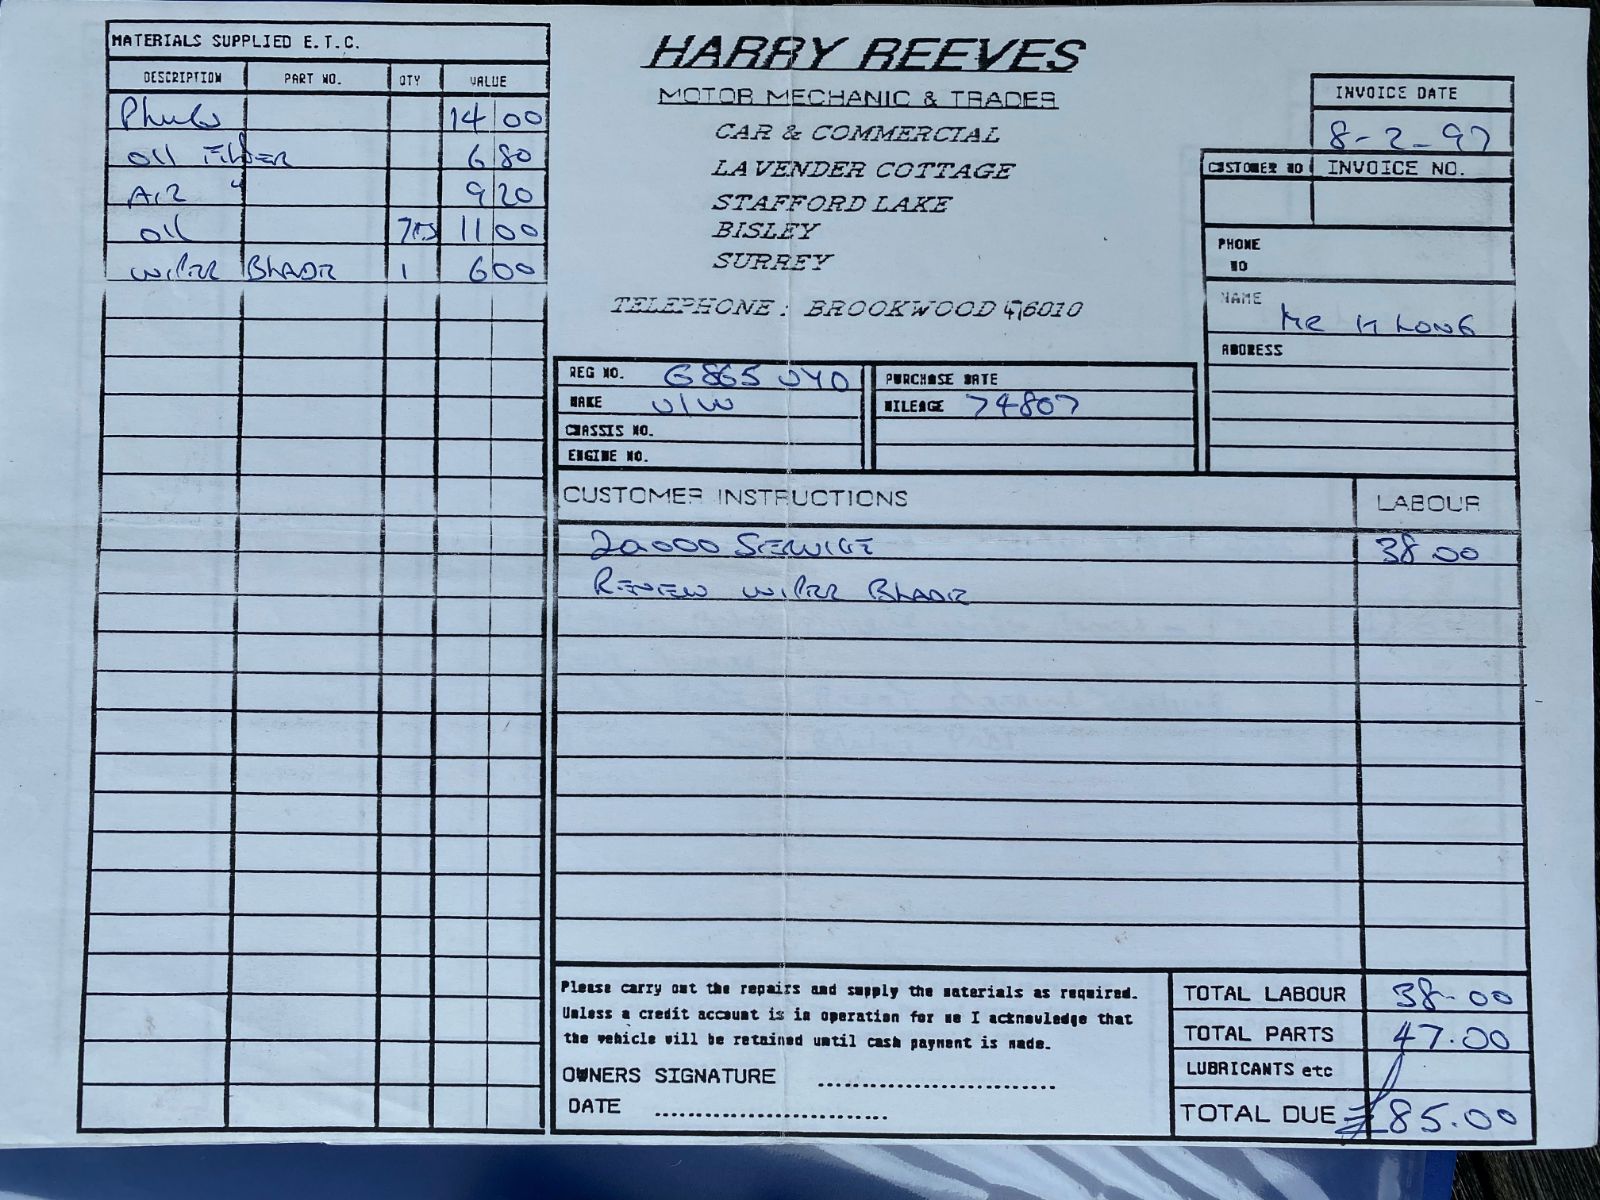 MATERIALS SUPPLIED E.T.C.
DESCRIPTION PART NO. QTY VALUE
Plugs 14 00
OIL FILTER 6 80
AIR " 9 20
OIL 11 00
WIPER BLADE 1 6 00
HARRY REEVES
MOTOR MECHANIC & TRADER
CAR & COMMERCIAL
LAVENDER COTTAGE
STAFFORD LAKE
BISLEY
SURREY
TELEPHONE : BROOKWOOD 46010
INVOICE DATE
8-2-97
CUSTOMER NO INVOICE NO.
PHONE
NO
NAME
MR K LONG
ADDRESS
REG NO. G865 JYO
MAKE V/W
CHASSIS NO.
ENGINE NO.
PURCHASE DATE
MILEAGE 74807
CUSTOMER INSTRUCTIONS LABOUR
20.000 SERVICE 38 00
RENEW WIPER BLADE
Please carry out the repairs and supply the materials as required.
Unless a credit account is in operation for me I acknowledge that
the vehicle will be retained until cash payment is made.
OWNERS SIGNATURE
DATE
TOTAL LABOUR 38-00
TOTAL PARTS 47.00
LUBRICANTS etc
TOTAL DUE £85.00